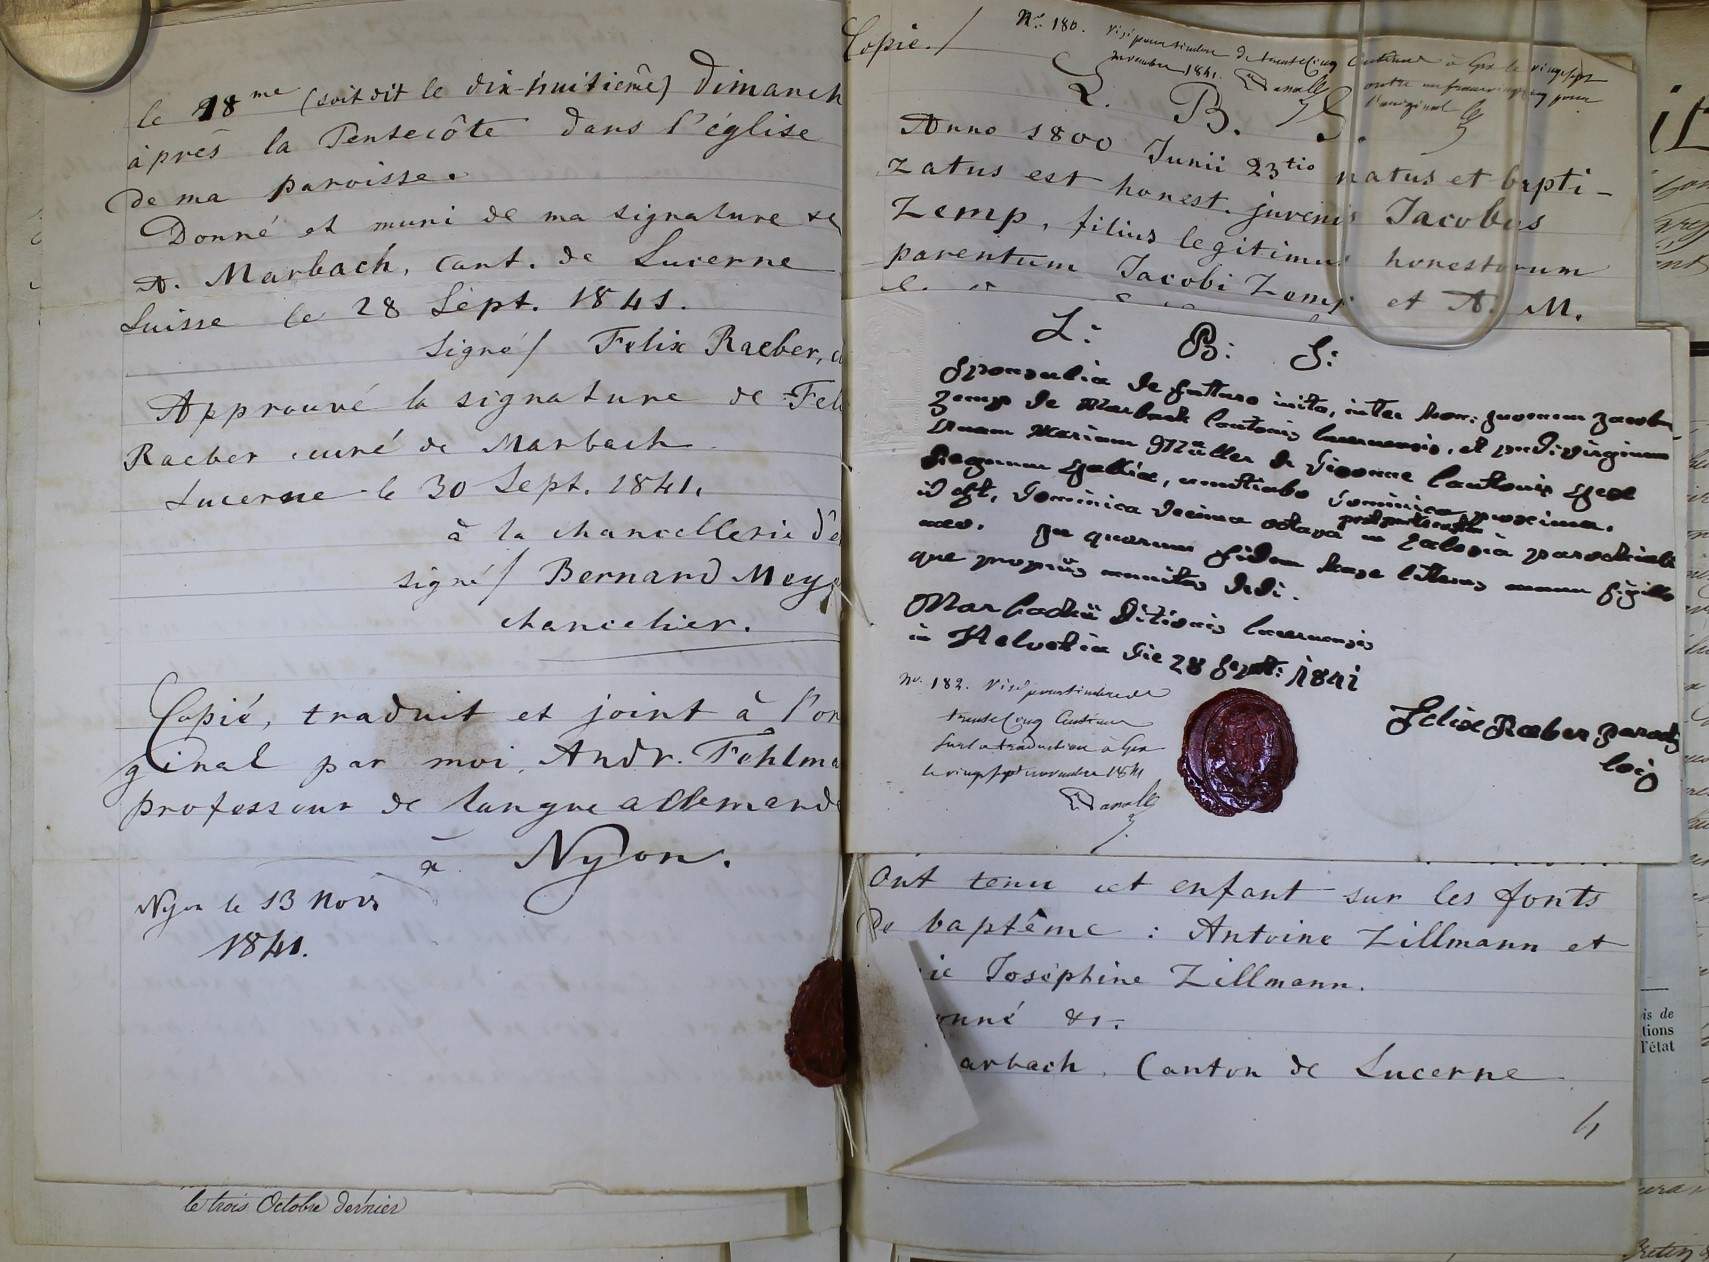 le 18me (soit dit le dix-huitième) Dimanch
après la Pentecôte dans l'église
de ma paroisse.
Donné et muni de ma signature &
A. Marbach, Cant. de Lucerne
Suisse le 28 Sept. 1841.
signé / Felix Raeber,
Approuvé la signature de Fel
Raeber curé de Marbach
Lucerne le 30 Sept. 1841.
à la chancellerie d'é
signé / Bernard Mey
chancelier.
Copié, traduit et joint à l'or
ginal par moi, Andr. Fehlma
professeur de langue allemand
à Nyon.
Nyon le 13 Novr
1841.
le trois Octobre dernier
Copie. /
No. 180. Visé pour timbre de trente cinq Centimes à Gex le vingt sept
novembre 1841. outre un franc pour
l'original
L. B. S.
Anno 1800 Junii 23tio natus et bapti-
zatus est honest. juvenis Jacobus
Zemp, filius legitimus honestorum
parentum Jacobi Zemp et A. M.
L: B: S:
Sponsalia de futuro inita, inter hon: juvenem Jacobum
Zemp de Marbach Cantonis lucernensis, et pud: virginem
Annam Mariam Müller de Divonne Cantonis Gex
Regnum Galliæ, nuntiabo Dominica proxima,
post pentecosten
id est, Dominica decima octava in Ecclesia parochiali
meo. In quorum fidem hasce litteras manu sigillo
que propriis munitas dedi.
Marbachii ditionis lucernensis
in Helvetia die 28 Sept: 1841
Felix Raeber Paroch
loci
No. 182. Visé pour timbre de
trente cinq Centimes
sur la traduction à Gex
le vingt sept novembre 1841
ont tenu cet enfant sur les fonts
de baptême : Antoine Zillmann et
ie Joséphine Zillmann.
onné &c.
arbach, Canton de Lucerne
is de
tions
l'état